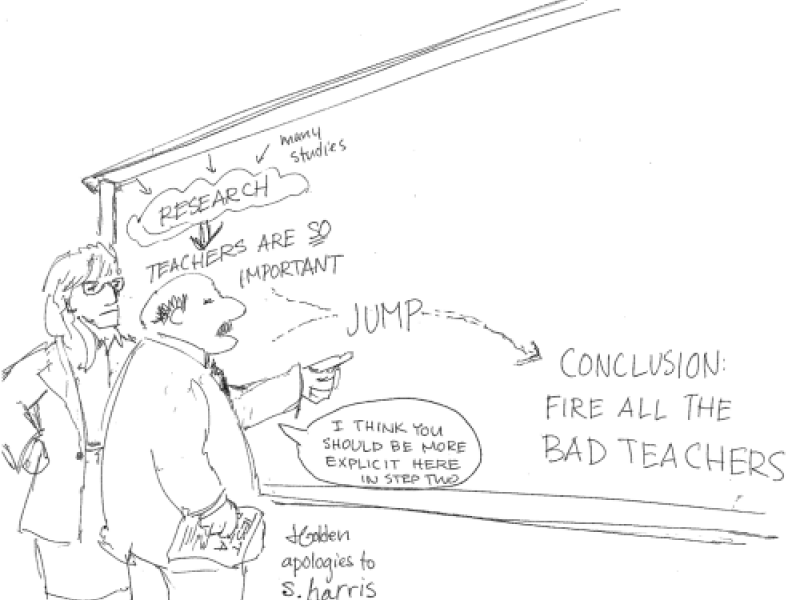 many
studies
RESEARCH
TEACHERS ARE SO
IMPORTANT
JUMP
CONCLUSION:
FIRE ALL THE
BAD TEACHERS
I THINK YOU
SHOULD BE MORE
EXPLICIT HERE
IN STEP TWO
JGolden
apologies to
S. harris